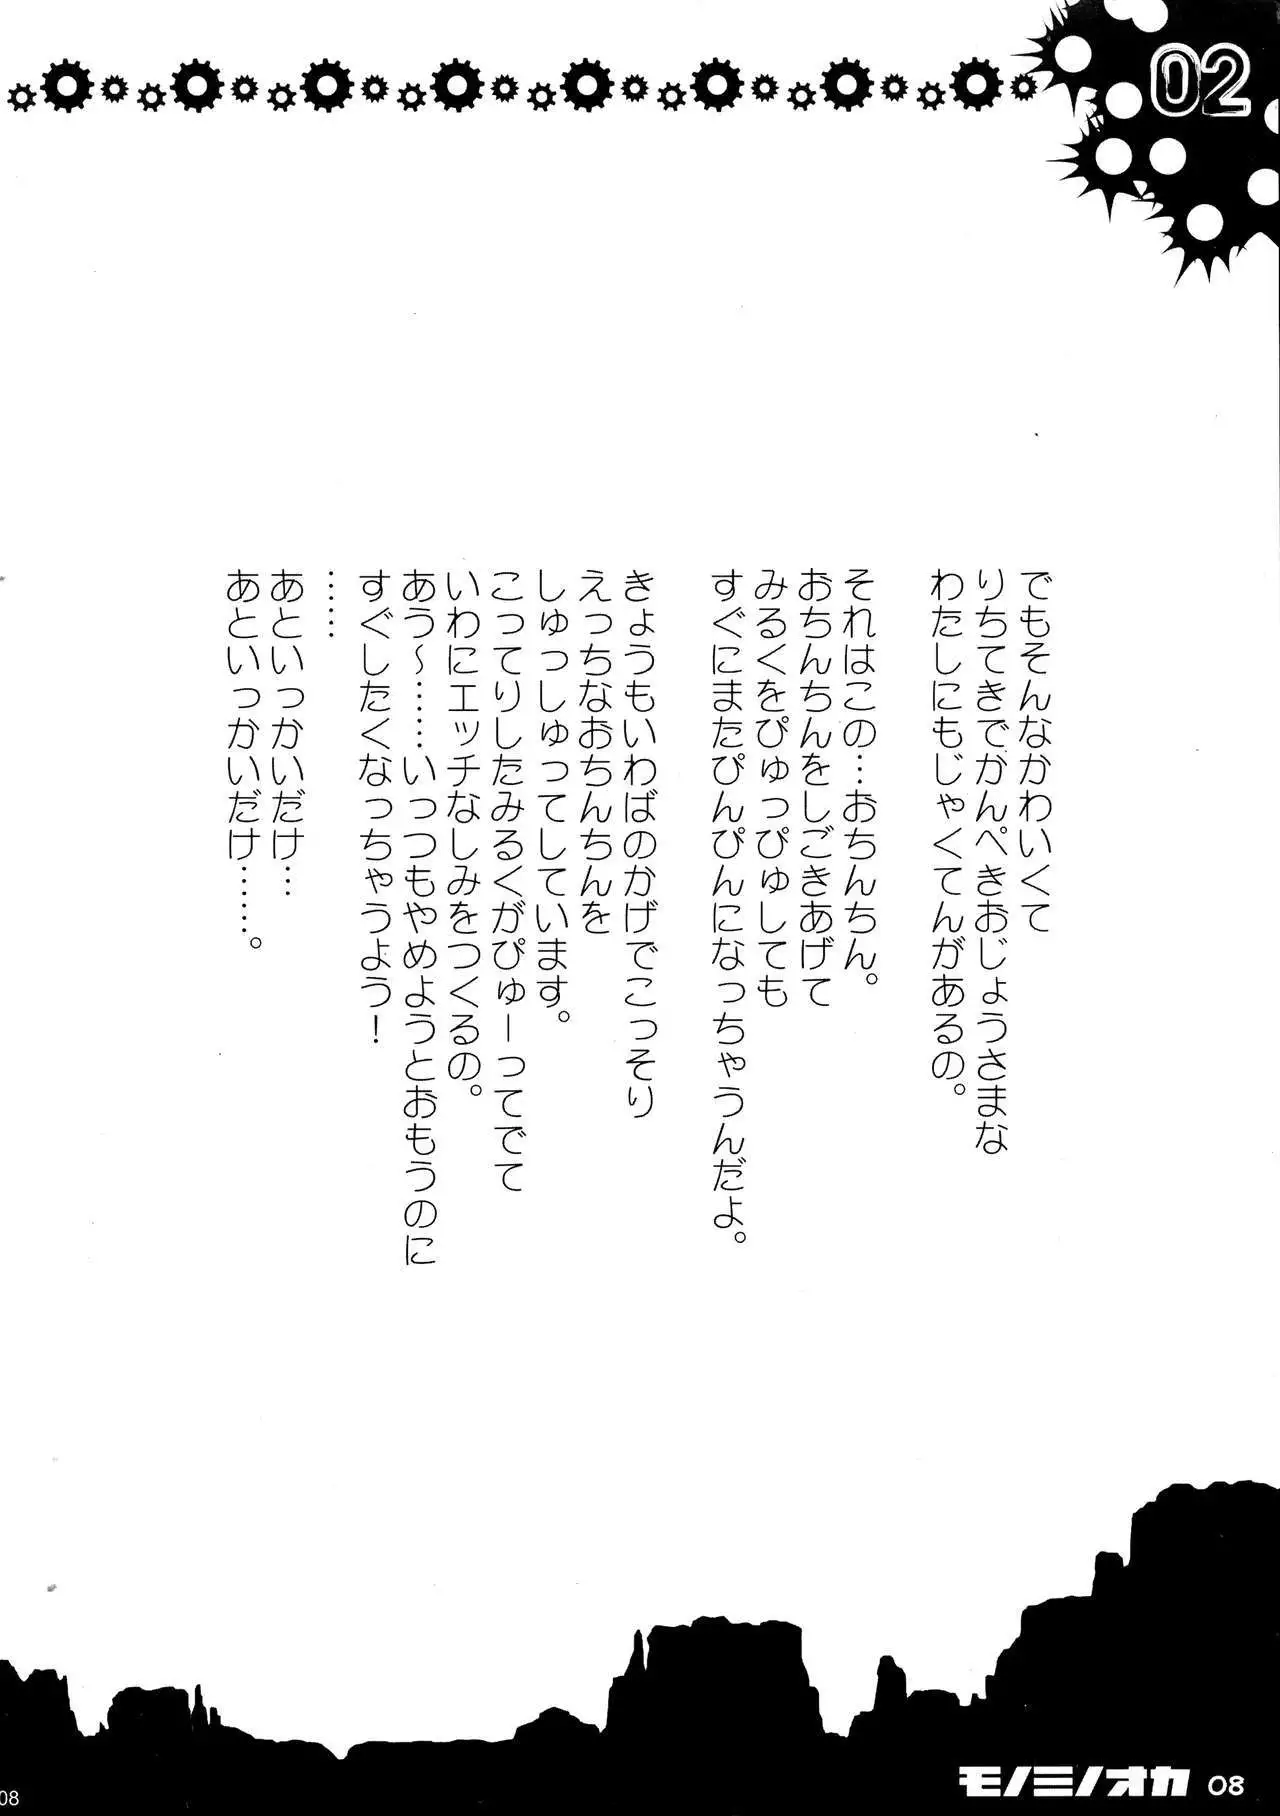 02
でもそんなかわいくて
りちてきでかんぺきおじょうさまな
わたしにもじゃくてんがあるの。
それはこの…おちんちん。
おちんちんをしごきあげて
みるくをぴゅっぴゅしても
すぐにまたぴんぴんになっちゃうんだよ。
きょうもいわばのかげでこっそり
えっちなおちんちんを
しゅっしゅってしています。
こってりしたみるくがぴゅーってでて
いわにエッチなしみをつくるの。
あう～……いっつもやめようとおもうのに
すぐしたくなっちゃうよう！
……
あといっかいだけ…
あといっかいだけ……。
モノミノオカ 08
08